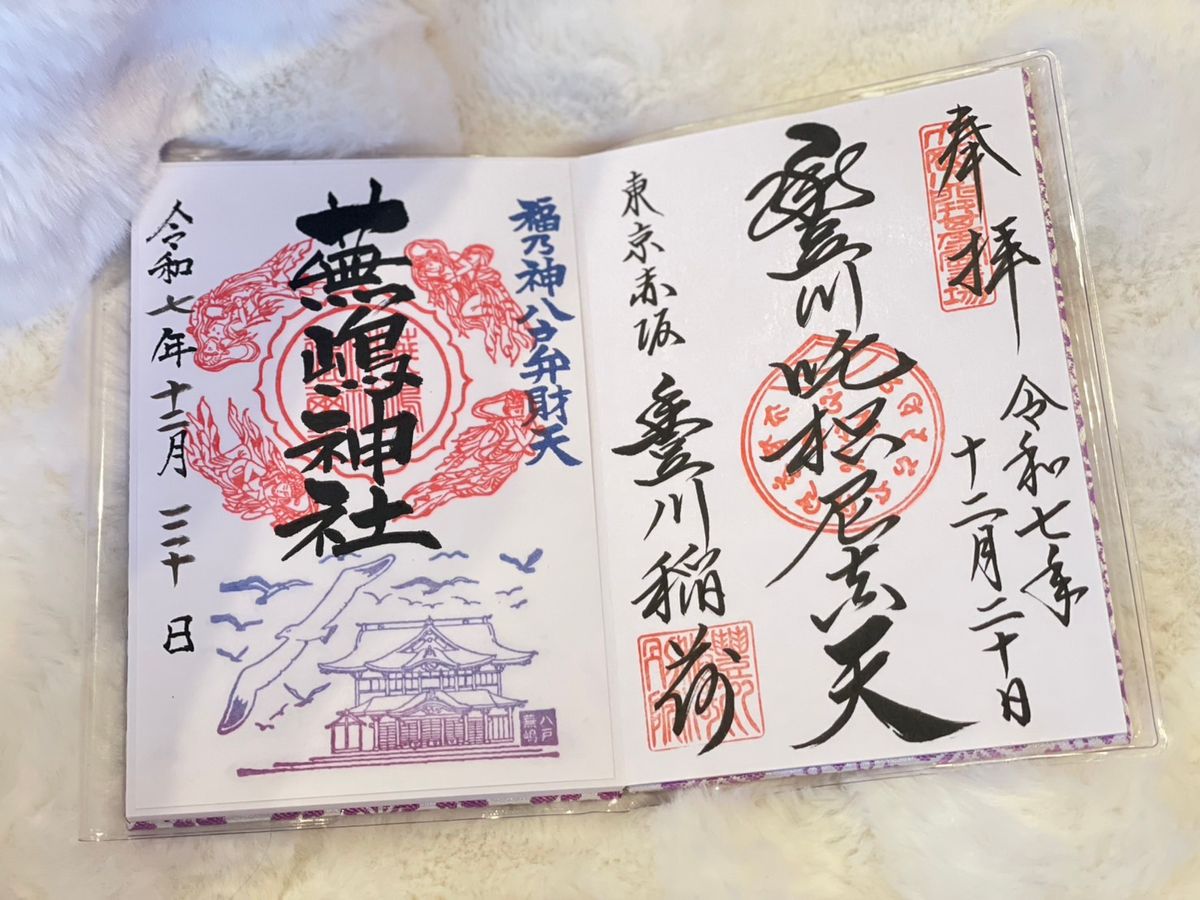 奉拝
令和七年
十二月二十日
豊川吒枳尼真天
東京赤坂 豊川稲荷
福乃神八戸弁財天
蕪嶋神社
令和七年十二月三十日
八戸
蕪嶋